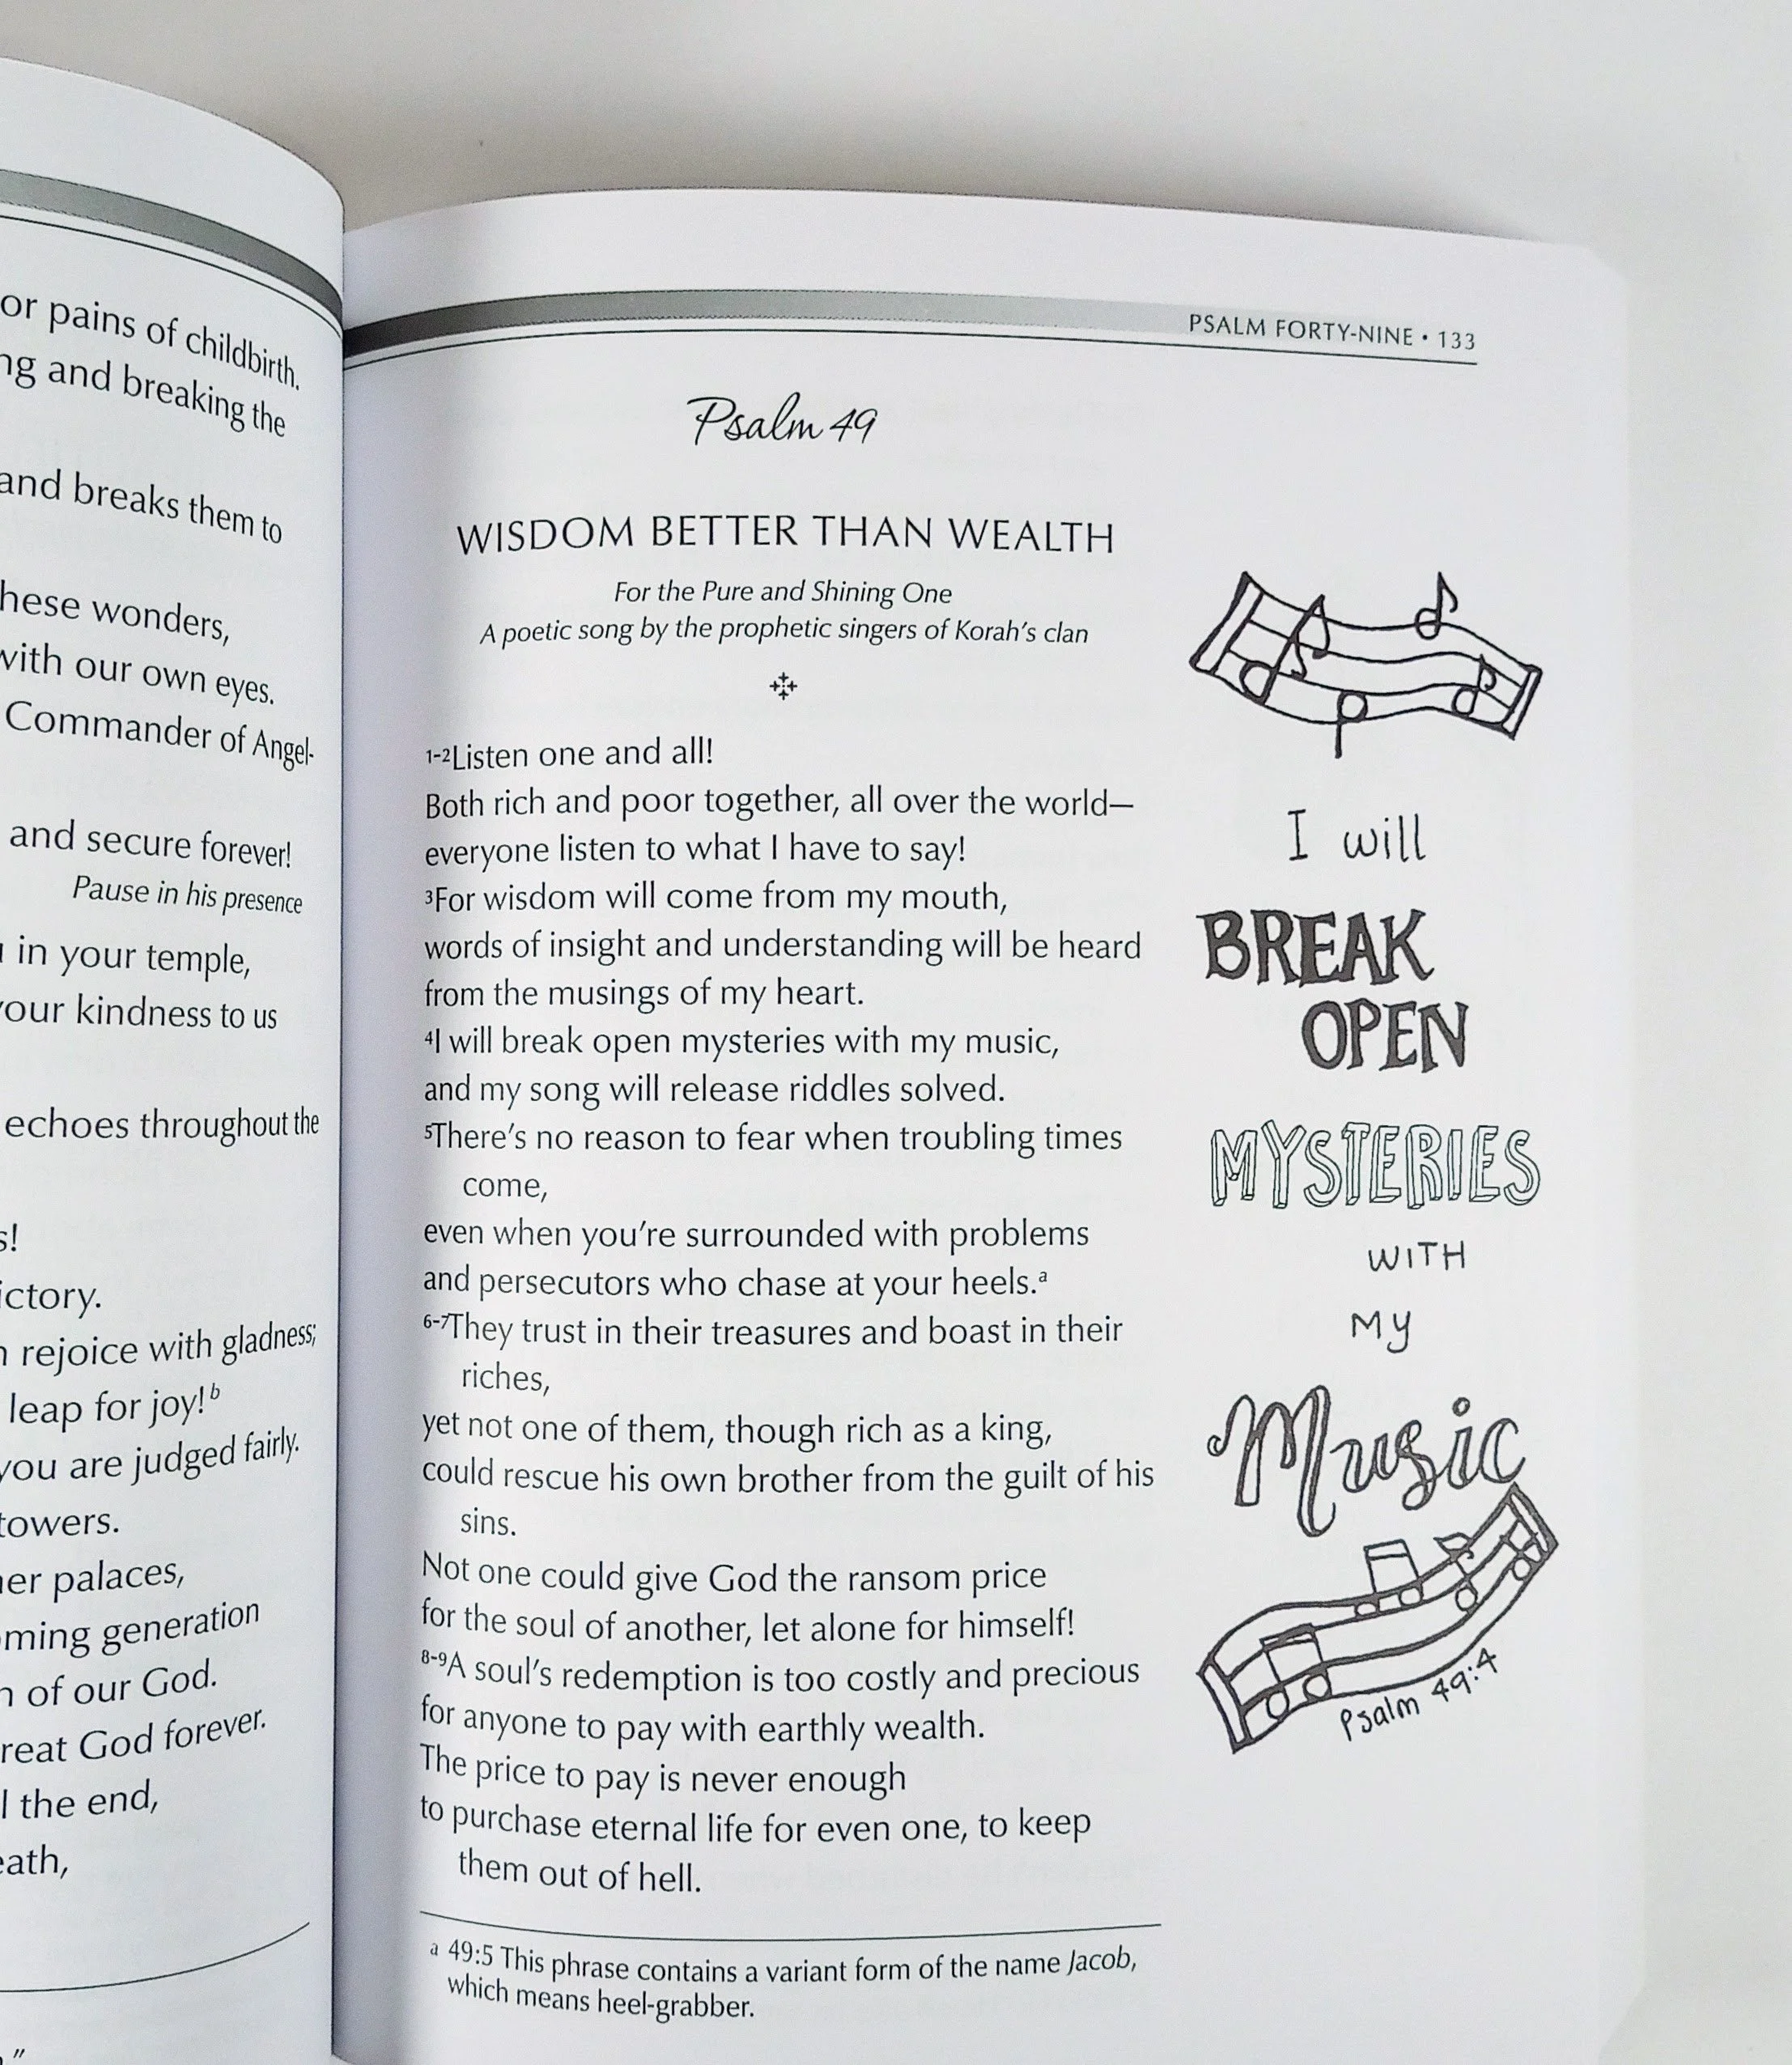 or pains of childbirth.
and breaking the
and breaks them to
hese wonders,
with our own eyes.
Commander of Angel-
and secure forever!
Pause in his presence
in your temple,
your kindness to us
echoes throughout the
s!
ictory.
rejoice with gladness;
leap for joy!b
you are judged fairly.
towers.
er palaces,
ming generation
of our God.
reat God forever.
the end,
eath,
"
PSALM FORTY-NINE • 133
Psalm 49
WISDOM BETTER THAN WEALTH
For the Pure and Shining One
A poetic song by the prophetic singers of Korah's clan
1-2Listen one and all!
Both rich and poor together, all over the world—
everyone listen to what I have to say!
3For wisdom will come from my mouth,
words of insight and understanding will be heard
from the musings of my heart.
4I will break open mysteries with my music,
and my song will release riddles solved.
5There's no reason to fear when troubling times
come,
even when you're surrounded with problems
and persecutors who chase at your heels.a
6-7They trust in their treasures and boast in their
riches,
yet not one of them, though rich as a king,
could rescue his own brother from the guilt of his
sins.
Not one could give God the ransom price
for the soul of another, let alone for himself!
8-9A soul's redemption is too costly and precious
for anyone to pay with earthly wealth.
The price to pay is never enough
to purchase eternal life for even one, to keep
them out of hell.
a 49:5 This phrase contains a variant form of the name Jacob,
which means heel-grabber.
I will
BREAK
OPEN
MYSTERIES
WITH
MY
Music
Psalm 49:4